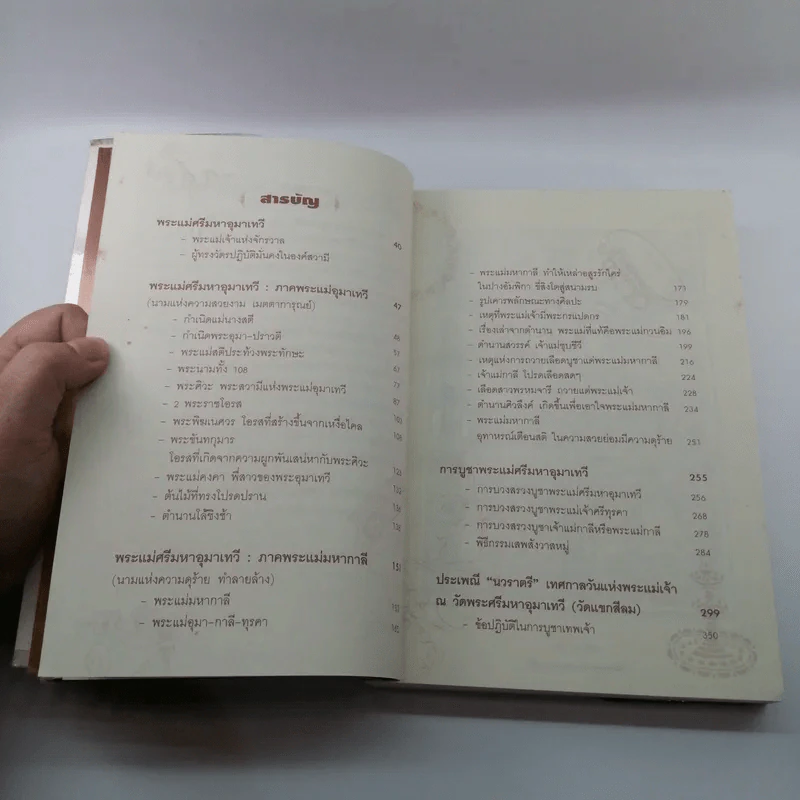 สารบัญ
พระแม่ศรีมหาอุมาเทวี
- พระแม่เจ้าแห่งจักรวาล 40
- ผู้ทรงวัตรปฏิบัติมั่นคงในองค์สวามี
พระแม่ศรีมหาอุมาเทวี : ภาคพระแม่อุมาเทวี 47
(นามแห่งความสวยงาม เมตตาการุณย์)
- กำเนิดแม่นางสตี
- กำเนิดพระอุมา-ปราวตี
- พระแม่สตีประท้วงพระทักษะ
- พระนามทั้ง 108
- พระศิวะ พระสวามีแห่งพระแม่อุมาเทวี 77
- 2 พระราชโอรส 87
- พระพิฆเนศวร โอรสที่สร้างขึ้นจากเหงื่อไคล
- พระขันทกุมาร
โอรสที่เกิดจากความผูกพันเสน่หากับพระศิวะ
- พระแม่คงคา พี่สาวของพระอุมาเทวี
- ต้นไม้ที่ทรงโปรดปราน
- ตำนานโล้ชิงช้า
พระแม่ศรีมหาอุมาเทวี : ภาคพระแม่มหากาลี
(นามแห่งความดุร้าย ทำลายล้าง)
- พระแม่มหากาลี
- พระแม่อุมา-กาลี-ทุรคา
- พระแม่มหากาลี ทำให้เหล่าอสูรรักใคร่
ในปางอัมพิกา ขี่สิงโตสู่สนามรบ 173
- รูปเคารพลักษณะทางศิลปะ 179
- เหตุที่พระแม่เจ้ามีพระกรแปดกร 181
- เรื่องเล่าจากตำนาน พระแม่ที่แท้คือพระแม่กวนอิม 196
- ตำนานสวรรค์ เจ้าแม่ชุบชีวี 199
- เหตุแห่งการถวายเลือดบูชาแด่พระแม่มหากาลี 216
- เจ้าแม่กาลี โปรดเลือดสดๆ 224
- เลือดสาวพรหมจารี ถวายแด่พระแม่เจ้า 228
- ตำนานศิวลึงค์ เกิดขึ้นเพื่อเอาใจพระแม่มหากาลี 234
- พระแม่มหากาลี
อุทาหรณ์เตือนสติ ในความสวยย่อมมีความดุร้าย 251
การบูชาพระแม่ศรีมหาอุมาเทวี 255
- การบวงสรวงบูชาพระแม่ศรีมหาอุมาเทวี 256
- การบวงสรวงบูชาพระแม่เจ้าศรีทุรคา 268
- การบวงสรวงบูชาเจ้าแม่กาลีหรือพระแม่กาลี 278
- พิธีกรรมเสพสังวาสหมู่ 284
ประเพณี "นวราตรี" เทศกาลวันแห่งพระแม่เจ้า
ณ วัดพระศรีมหาอุมาเทวี (วัดแขกสีลม) 299
- ข้อปฏิบัติในการบูชาเทพเจ้า 350